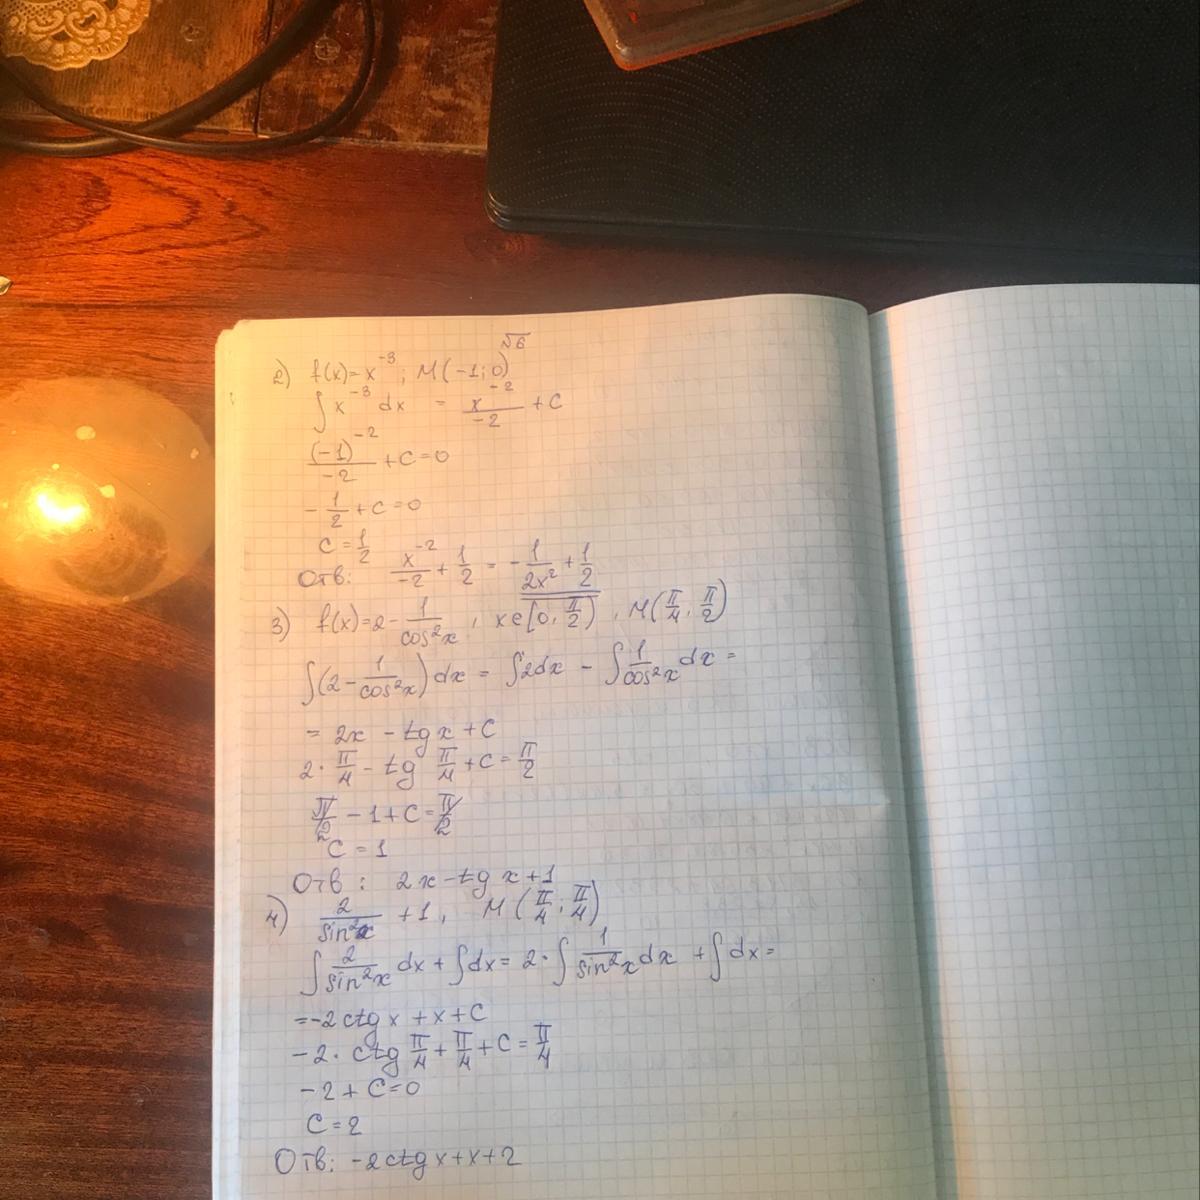 √6
2) f(x)=x⁻³; M(-1;0)
∫ x⁻³ dx = x⁻²/-2 + C
(-1)⁻²/-2 + C=0
-1/2 + C=0
C = 1/2
Отв: x⁻²/-2 + 1/2 = -1/2x² + 1/2
3) f(x)=2-1/cos²x, x∈[0; π/2), M(π/4; π/2)
∫(2-1/cos²x)dx = ∫2dx - ∫1/cos²x dx =
= 2x - tg x + C
2·π/4 - tg π/4 + C = π/2
π/2 - 1 + C = π/2
C = 1
Отв: 2x-tg x+1
4) 2/sin²x + 1, M(π/4; π/4)
∫2/sin²x dx + ∫dx = 2·∫1/sin²x dx + ∫dx =
=-2ctg x + x + C
-2·ctg π/4 + π/4 + C = π/4
-2 + C=0
C = 2
Отв: -2ctg x+x+2